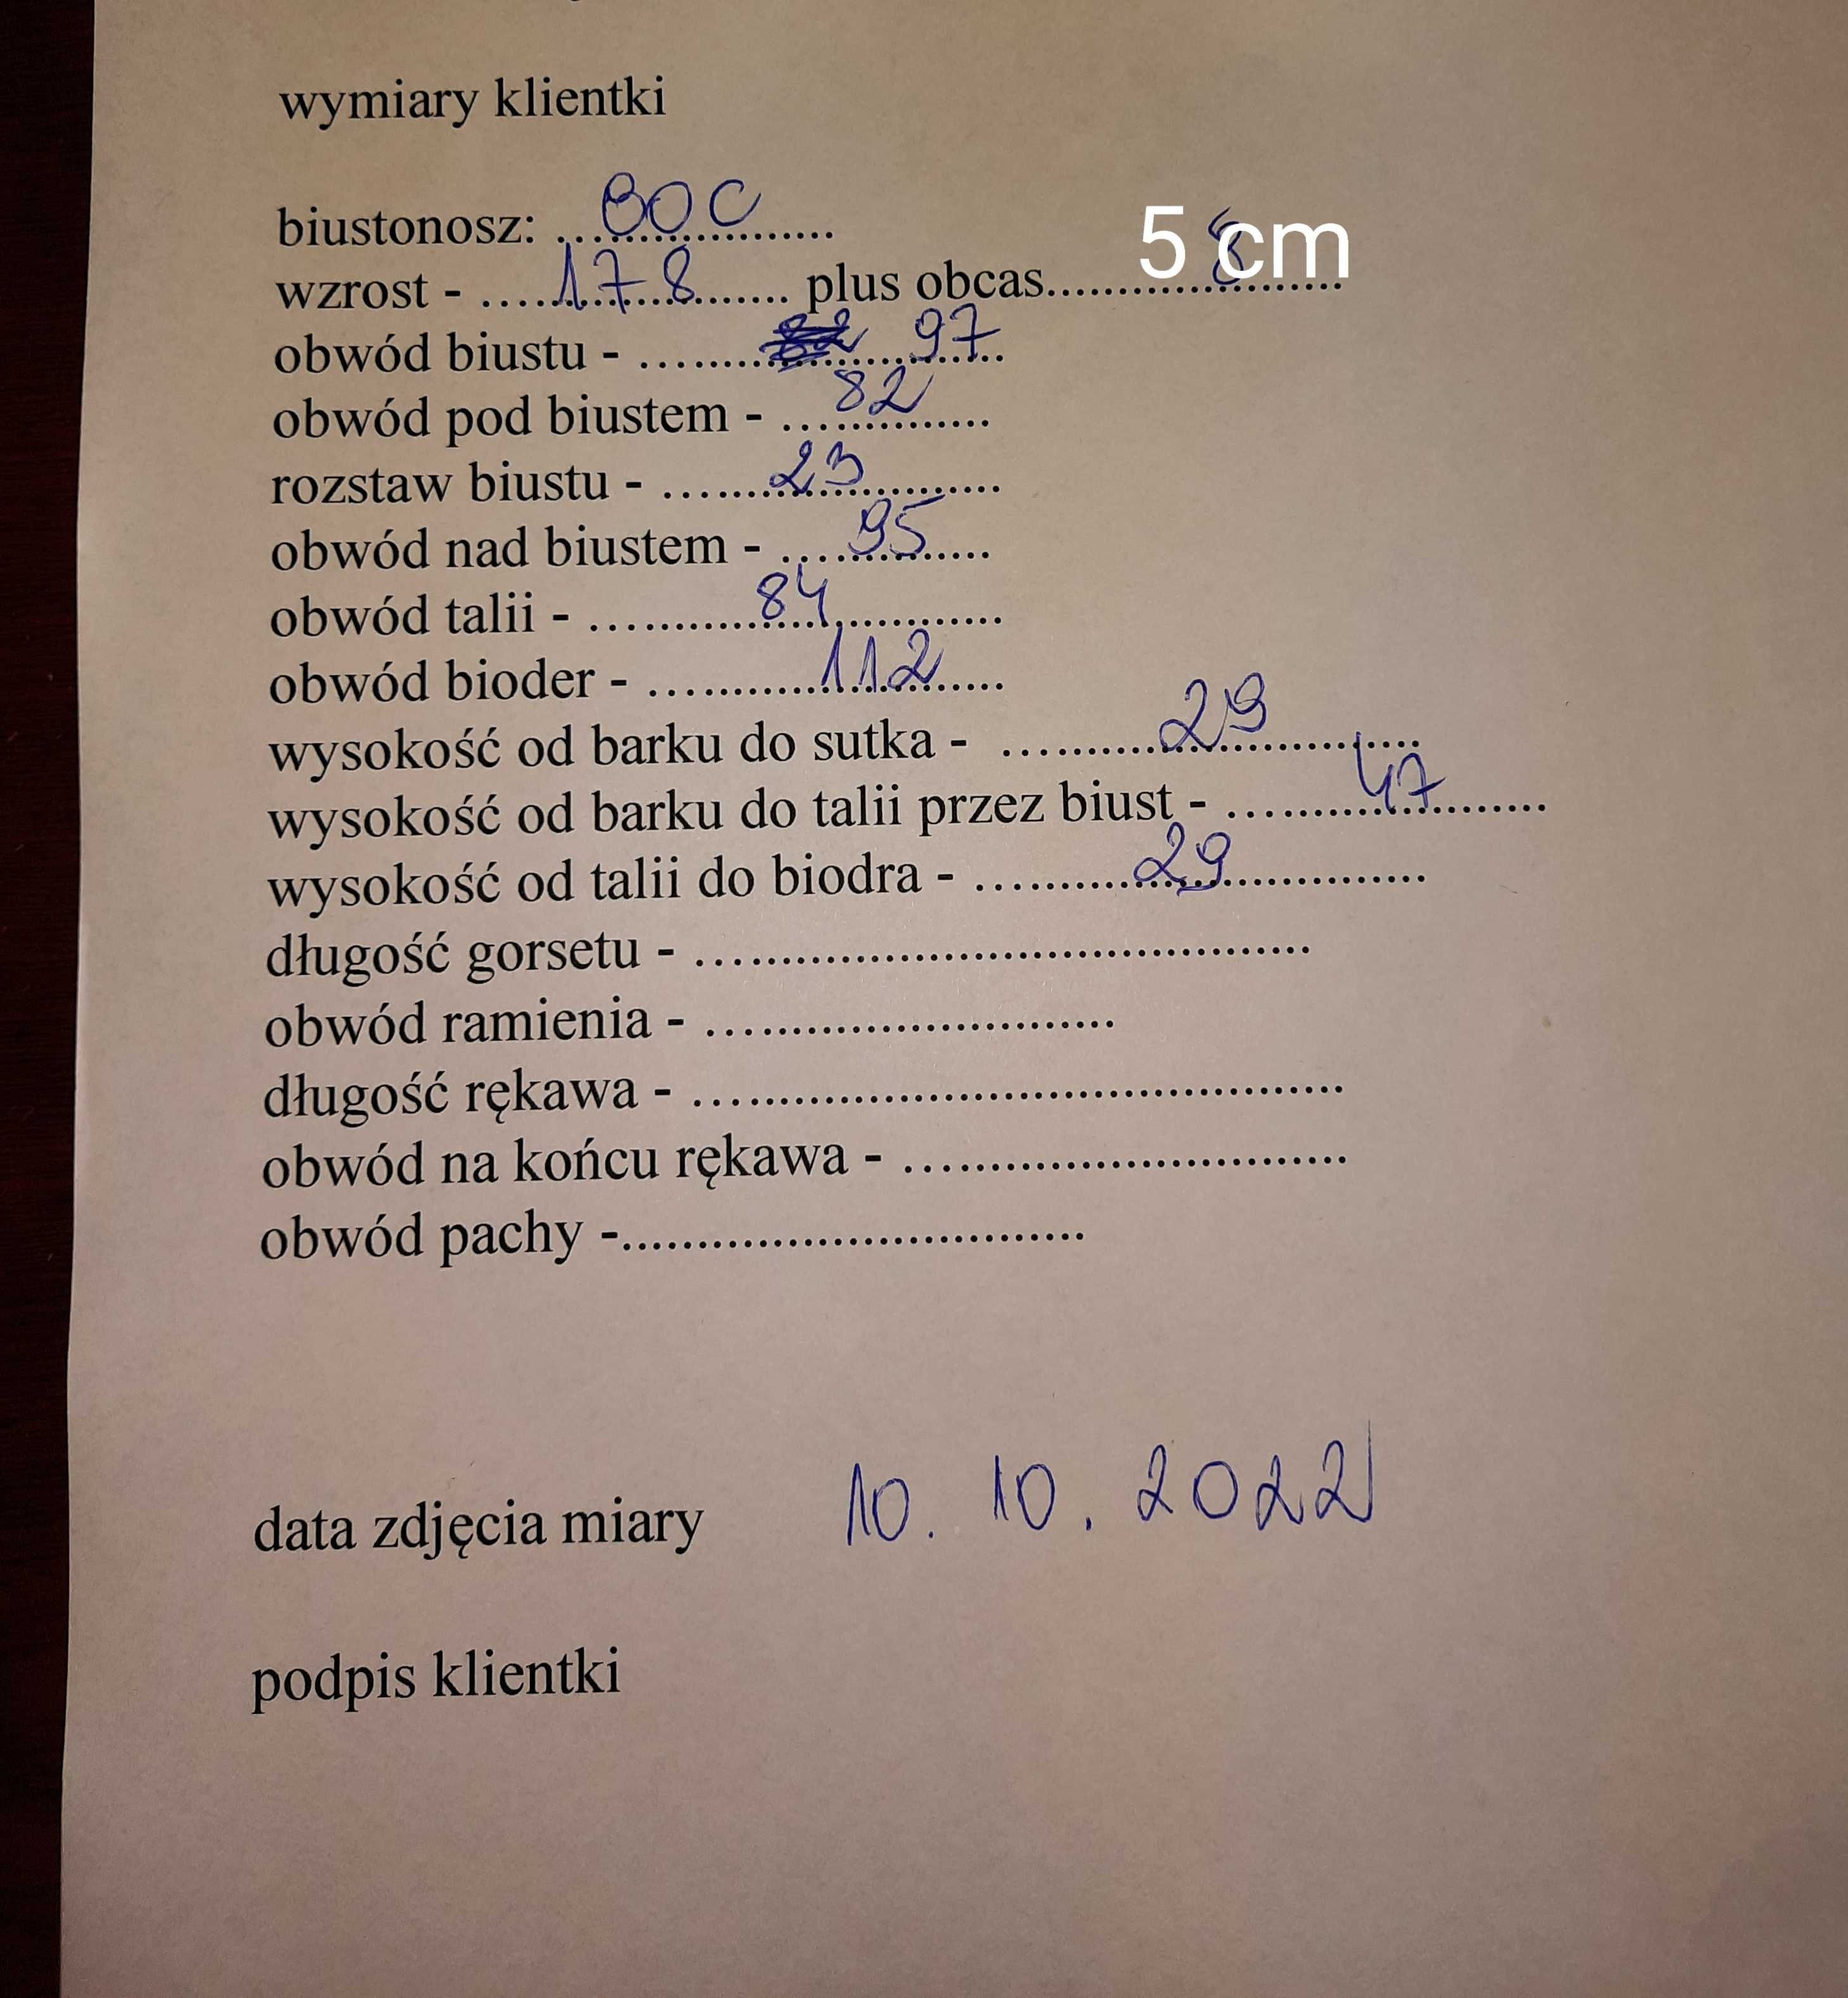 wymiary klientki
biustonosz: ...80C...
wzrost - ...178... plus obcas...8 5 cm
obwód biustu - ... 97
obwód pod biustem - ...82...
rozstaw biustu - ...23...
obwód nad biustem - ...95...
obwód talii - ...84...
obwód bioder - ...112...
wysokość od barku do sutka - ...29...
wysokość od barku do talii przez biust - ...47...
wysokość od talii do biodra - ...29...
długość gorsetu - ...
obwód ramienia - ...
długość rękawa - ...
obwód na końcu rękawa - ...
obwód pachy -...
data zdjęcia miary 10. 10. 2022
podpis klientki